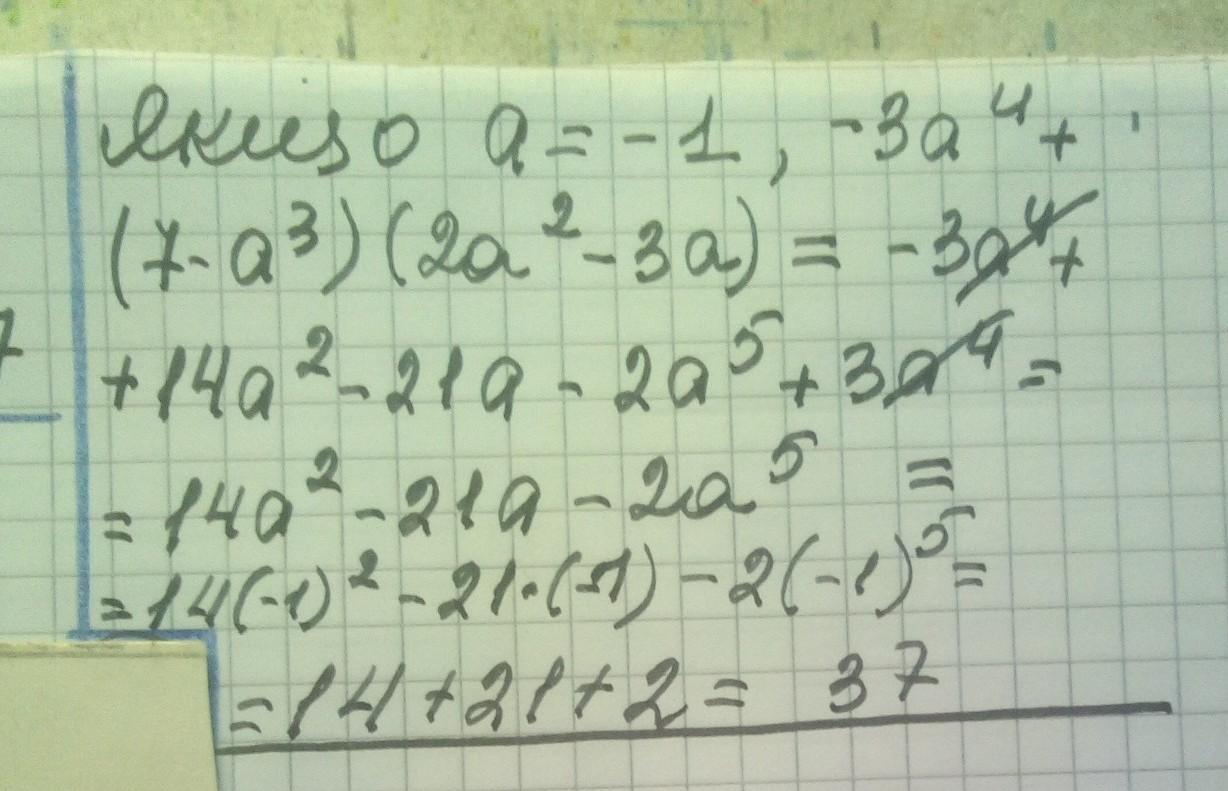 Якщо a = -1, -3a⁴ +
(7 - a³)(2a² - 3a) = -3a⁴ +
+ 14a² - 21a - 2a⁵ + 3a⁴ =
= 14a² - 21a - 2a⁵ =
= 14(-1)² - 21·(-1) - 2(-1)⁵ =
= 14 + 21 + 2 = 37
7